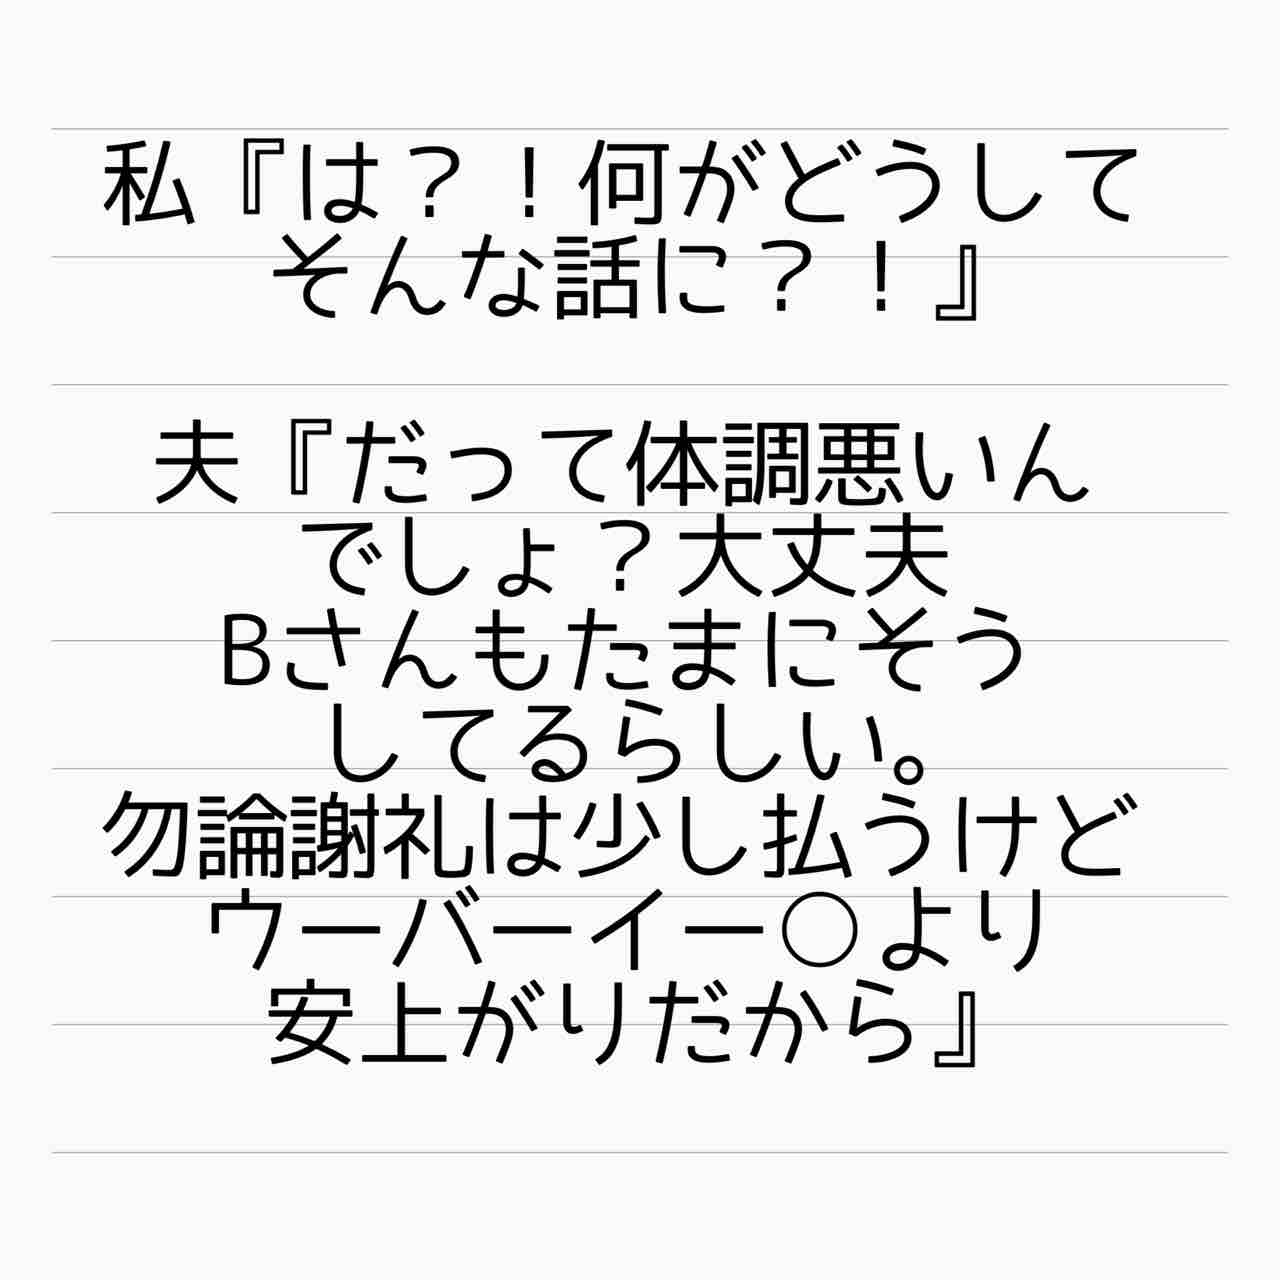 私『は？！何がどうして
そんな話に？！』
夫『だって体調悪いん
でしょ？大丈夫
Bさんもたまにそう
してるらしい。
勿論謝礼は少し払うけど
ウーバーイー○より
安上がりだから』